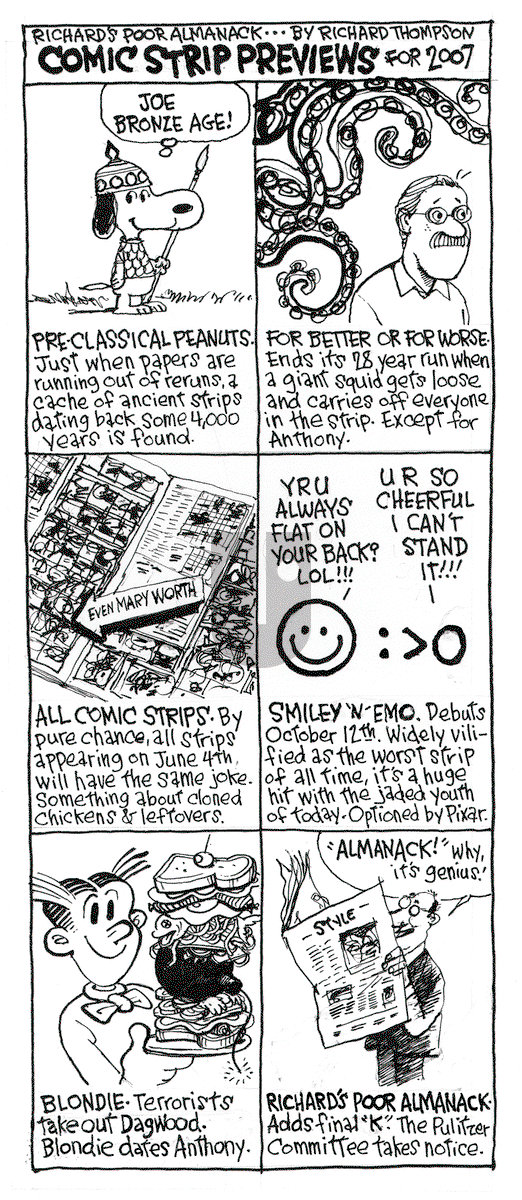 RICHARD'S POOR ALMANACK... BY RICHARD THOMPSON
COMIC STRIP PREVIEWS FOR 2007
JOE
BRONZE AGE!
PRE-CLASSICAL PEANUTS.
Just when papers are
running out of reruns, a
cache of ancient strips
dating back some 4,000
years is found.
FOR BETTER OR FOR WORSE.
Ends its 28 year run when
a giant squid gets loose
and carries off everyone
in the strip. Except for
Anthony.
EVEN MARY WORTH
ALL COMIC STRIPS. By
pure chance, all strips
appearing on June 4th,
will have the same joke.
Something about cloned
chickens & leftovers.
Y R U
ALWAYS
FLAT ON
YOUR BACK?
LOL!!!
U R SO
CHEERFUL
I CAN'T
STAND
IT!!!
:>O
SMILEY 'N' EMO. Debuts
October 12th. Widely vili-
fied as the worst strip
of all time, it's a huge
hit with the jaded youth
of today. Optioned by Pixar.
BLONDIE. Terrorists
take out Dagwood.
Blondie dates Anthony.
"ALMANACK!" Why,
it's genius!
STYLE
RICHARD'S POOR ALMANACK.
Adds final "K". The Pulitzer
Committee takes notice.